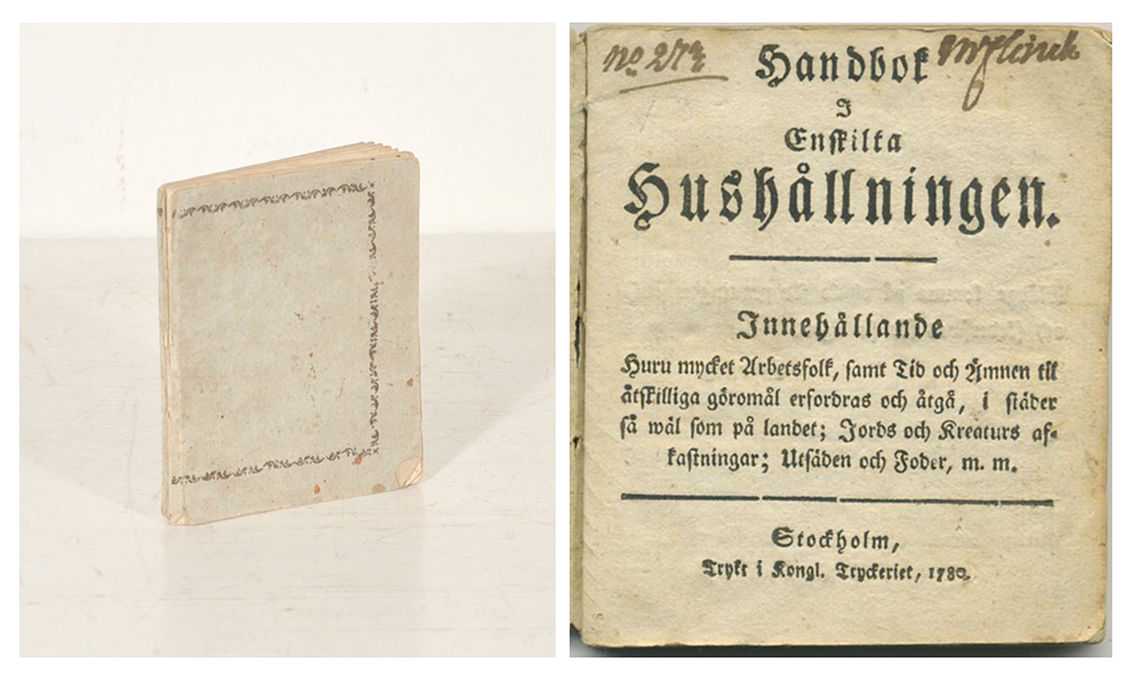 no. 273
Handbok
I
Enskilta
Hushållningen.
Innehållande
Huru mycket Arbetsfolk, samt Tid och Ämnen till
åtskilliga göromål erfordras och åtgå, i städer
så wäl som på landet; Jords och Kreaturs af-
kastningar; Utsäden och Foder, m. m.
Stockholm,
Trykt i Kongl. Tryckeriet, 1780.